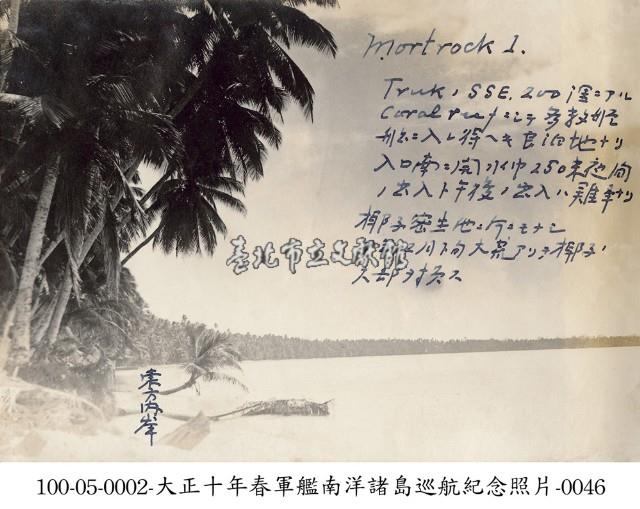 Mortrock I.
Truk, SSE, 200浬ニアル
Coral reefニシテ多数船
舶ニ入レ得ヘキ良泊地ナリ
入口南ニ開ク巾250米夜間
ノ出入下午後ノ出入ハ難
椰子密生他ニ何モナシ
年 月 大 アリテ椰子ノ
大部ヲ損ス
臺北市立文獻館
東方内岸
100-05-0002-大正十年春軍艦南洋諸島巡航紀念照片-0046